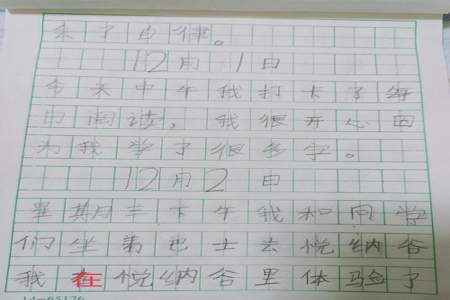 12月1日
今天中午我打卡了每
日阅读，我很开心因
为我学了很多字。
12月2日
星期三下午我和同学
们坐第巴士去悦纳谷
我在悦纳谷里体验了